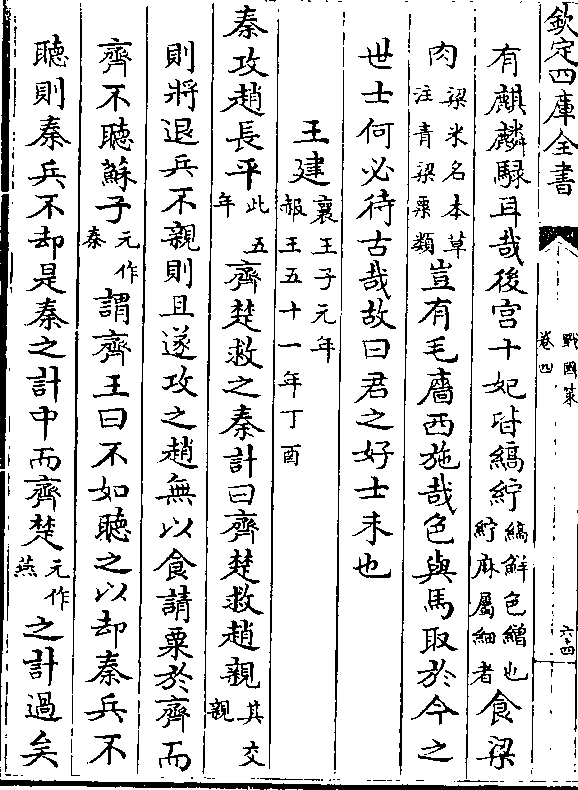 欽定四庫全書
戰國策
卷四
六十四
有麒麟騄耳哉後宫十妃皆縞紵縞鮮色繒也紵麻屬細者食梁
肉梁米名本草注青梁粟類豈有毛廧西施哉色與馬取於今之
世士何必待古哉故曰君之好士未也
王建襄王子元年赧王五十一年丁酉
秦攻趙長平此五年齊楚救之秦計曰齊楚救趙親其交親
則將退兵不親則且遂攻之趙無以食請粟於齊而
齊不聽蘇子元作秦謂齊王曰不如聽之以却秦兵不
聽則秦兵不却是秦之計中而齊楚元作燕之計過矣